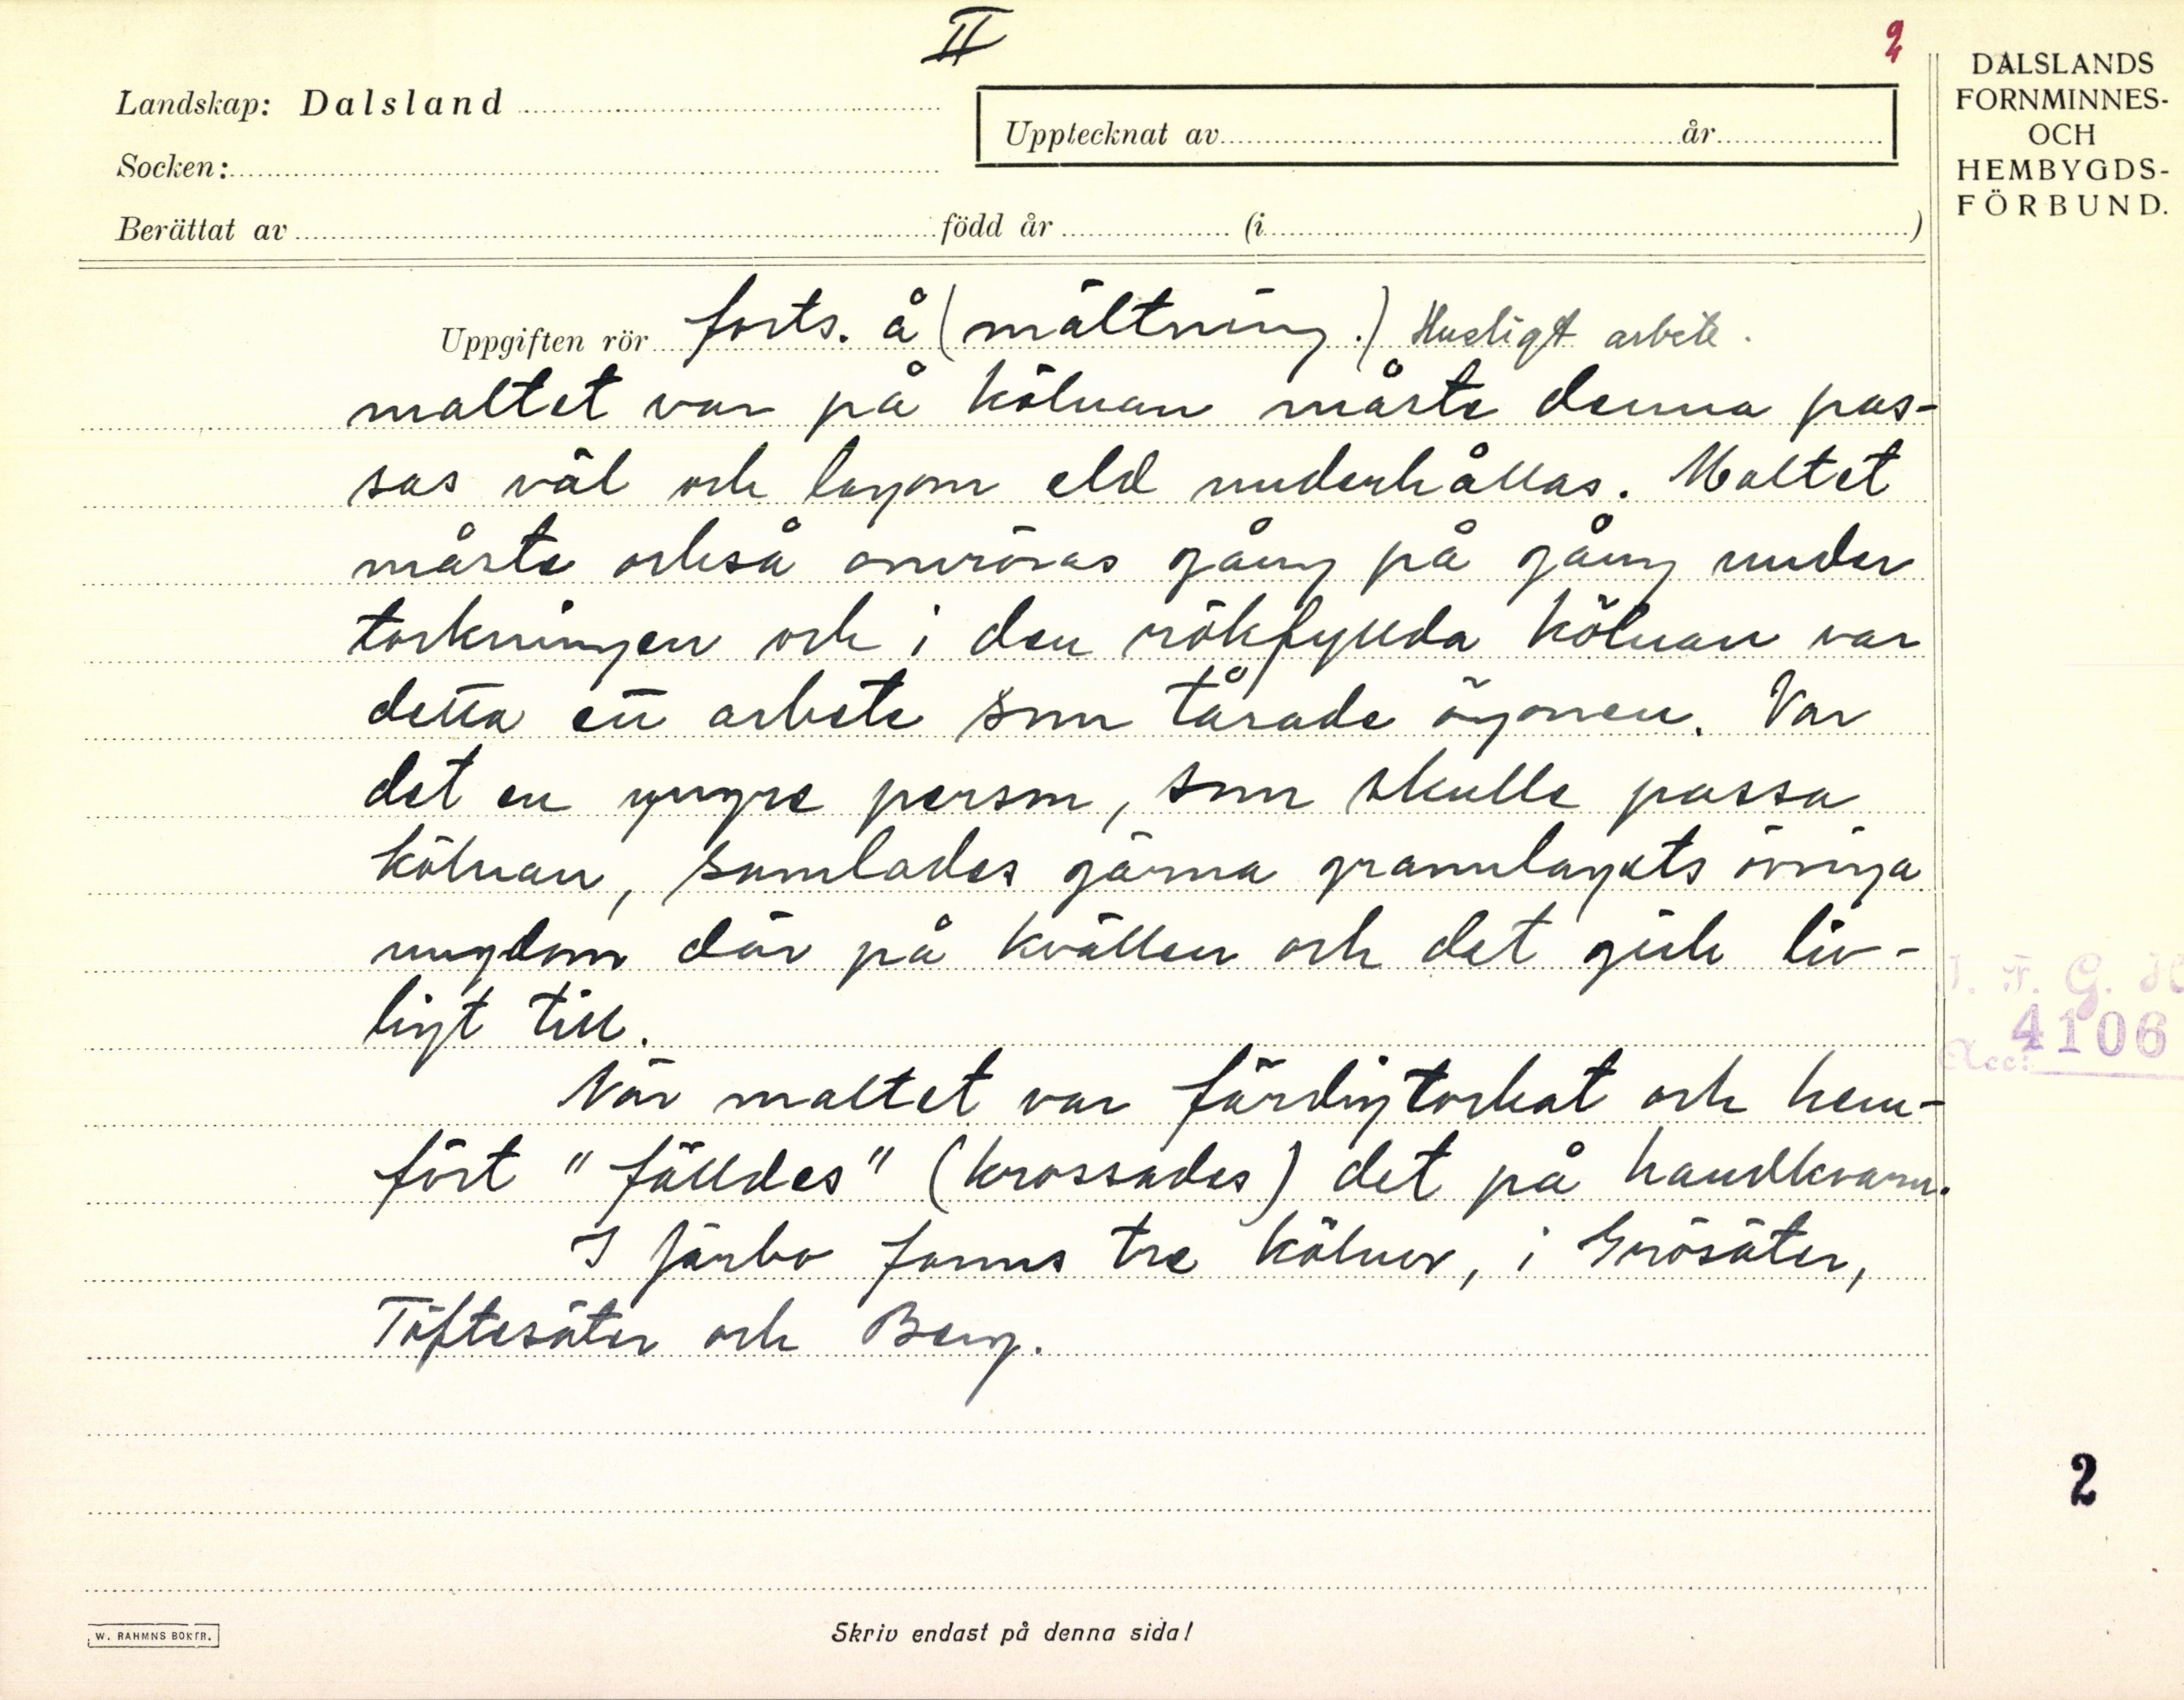 II
2
Landskap: Dalsland
Upptecknat av år
Socken:
Berättat av född år (i )
DALSLANDS
FORNMINNES-
OCH
HEMBYGDS-
FÖRBUND.
Uppgiften rör forts. å (mältning.) Husligt arbete.
maltet var på kölnan måste denna pas-
sas väl och lagom eld underhållas. Maltet
måste också omröras gång på gång under
torkningen och i den rökfyllda kölnan var
detta ett arbete som tårade ögonen. Var
det en yngre person, som skulle passa
kölnan, samlades gärna grannlagets övriga
ungdom där på kvällen och det gick liv-
ligt till.
När maltet var färdigtorkat och hem-
fört "fälldes" (krossades) det på handkvarn.
I Järbo fanns tre kölnor, i Grösäter,
Töftesäter och Berg.
J. F. G. H
4106
Acc:
2
W. RAHMNS BOKTR.
Skriv endast på denna sida!